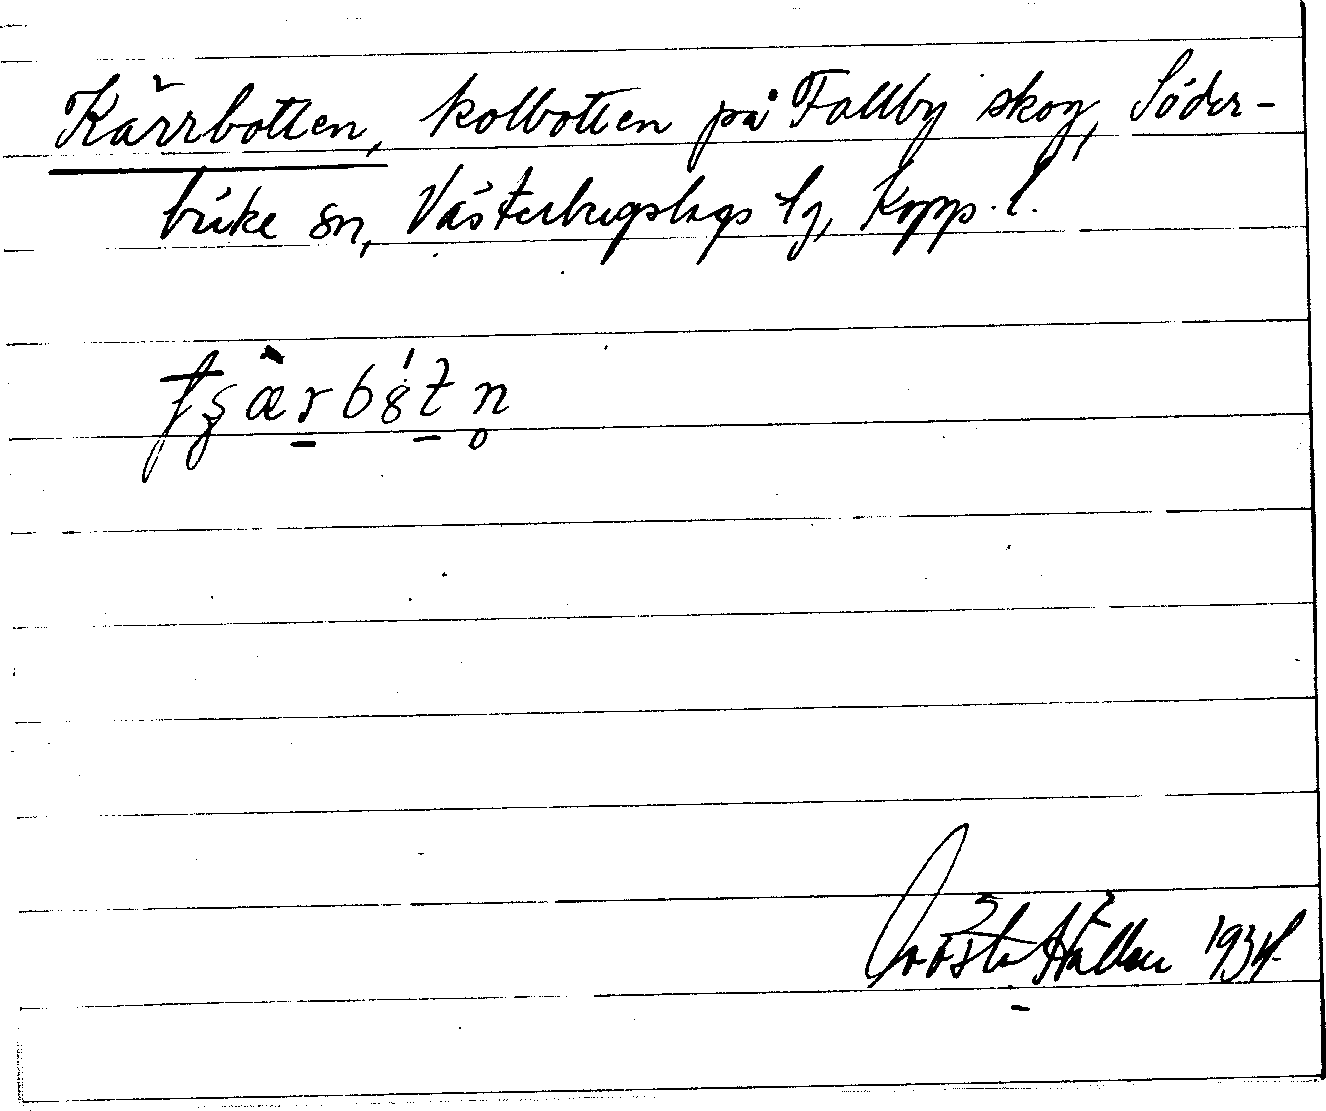 Kärrbotten, kolbotten på Fallby skog, Söder-
bärke sn, Västerbergslags tg, Kopp. l.
Gösta Hållen 1934